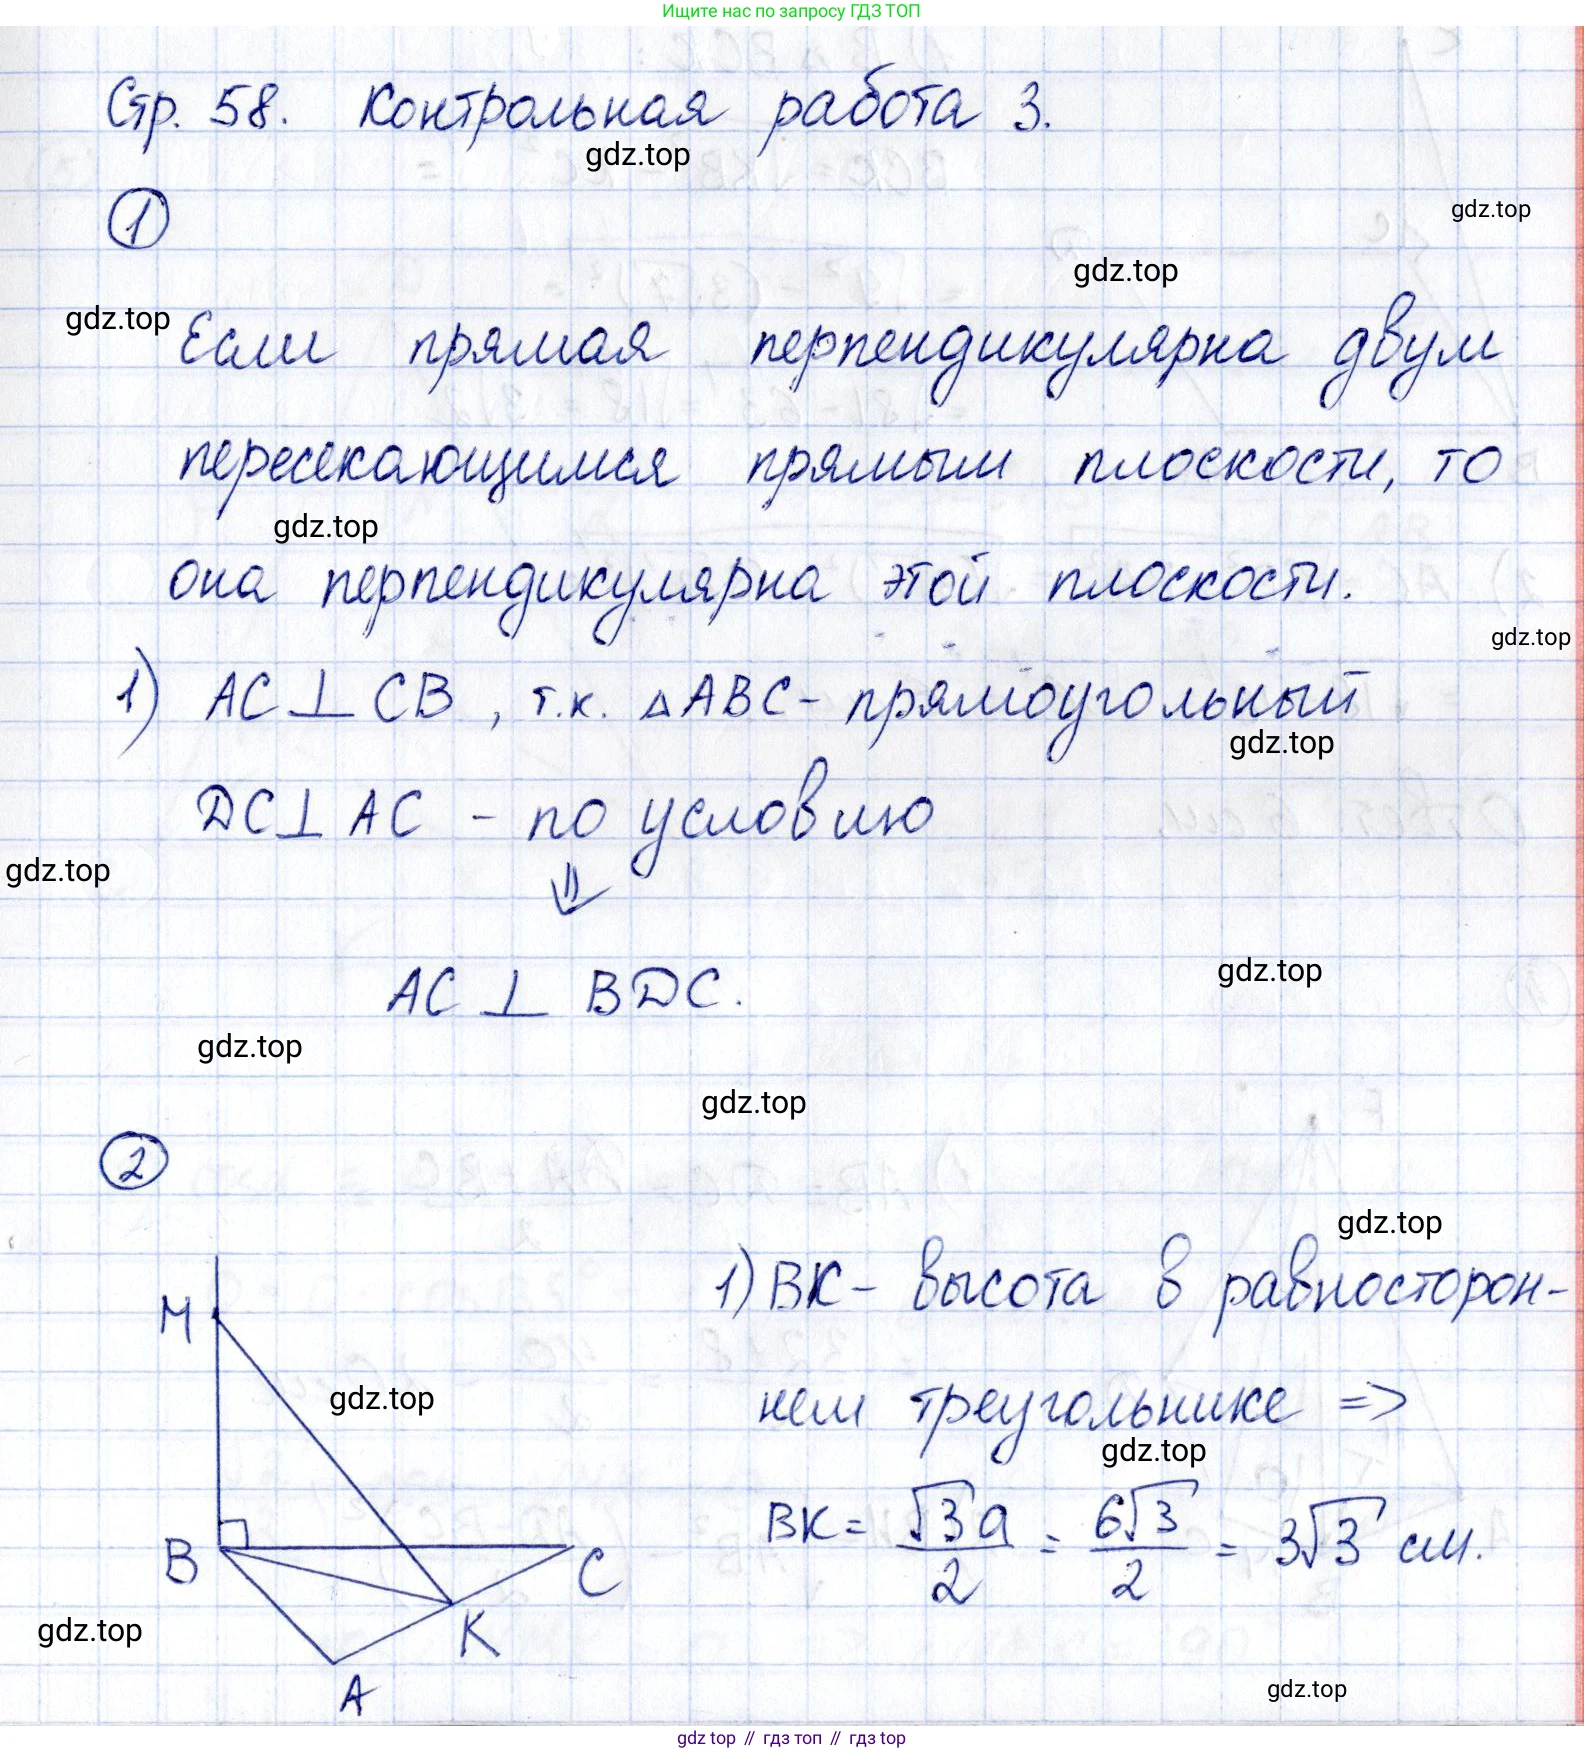 Ищите нас по запросу ГДЗ ТОП
Стр. 58. Контрольная работа 3.
gdz.top
1
gdz.top
gdz.top
gdz.top
Если прямая перпендикулярна двум
пересекающимся прямым плоскости, то
gdz.top
она перпендикулярна этой плоскости.
gdz.top
1) AC ⊥ CB, т.к. △ABC - прямоугольный
gdz.top
DC ⊥ AC - по условию
gdz.top
⇓
AC ⊥ BDC.
gdz.top
gdz.top
gdz.top
2
gdz.top
1) BK - высота в равносторон-
M
gdz.top
нем треугольнике =>
gdz.top
BK = √3a/2 = 6√3/2 = 3√3 см.
B
C
K
gdz.top
A
gdz.top
gdz top // гдз топ // гдз top